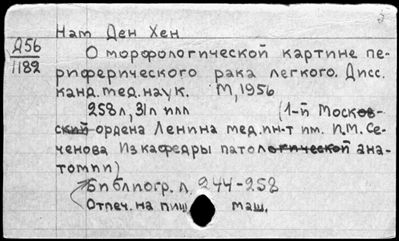 Нам Ден Хен
Д56
1182
О морфологической картине пе-
риферического рака легкого. Дисс.
канд. мед. наук. М, 1956
258 л, 31 л илл (1-й Москов-
ский ордена Ленина мед. ин-т им. И.М. Се-
ченова Из кафедры патологической ана-
томии)
Библиогр. л. 244-258
Отпеч. на пиш. маш.